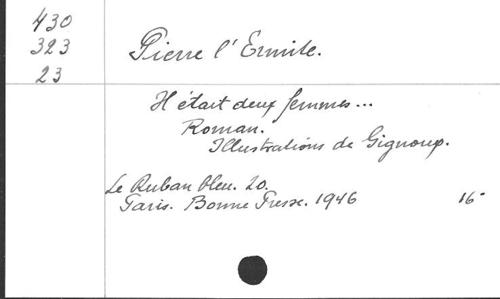 430
323
23
Pierre l'Ermite.
Il était deux femmes...
Roman.
Illustrations de Gignoux.
Le Ruban bleu. 20.
Paris. Bonne Presse. 1946 16°